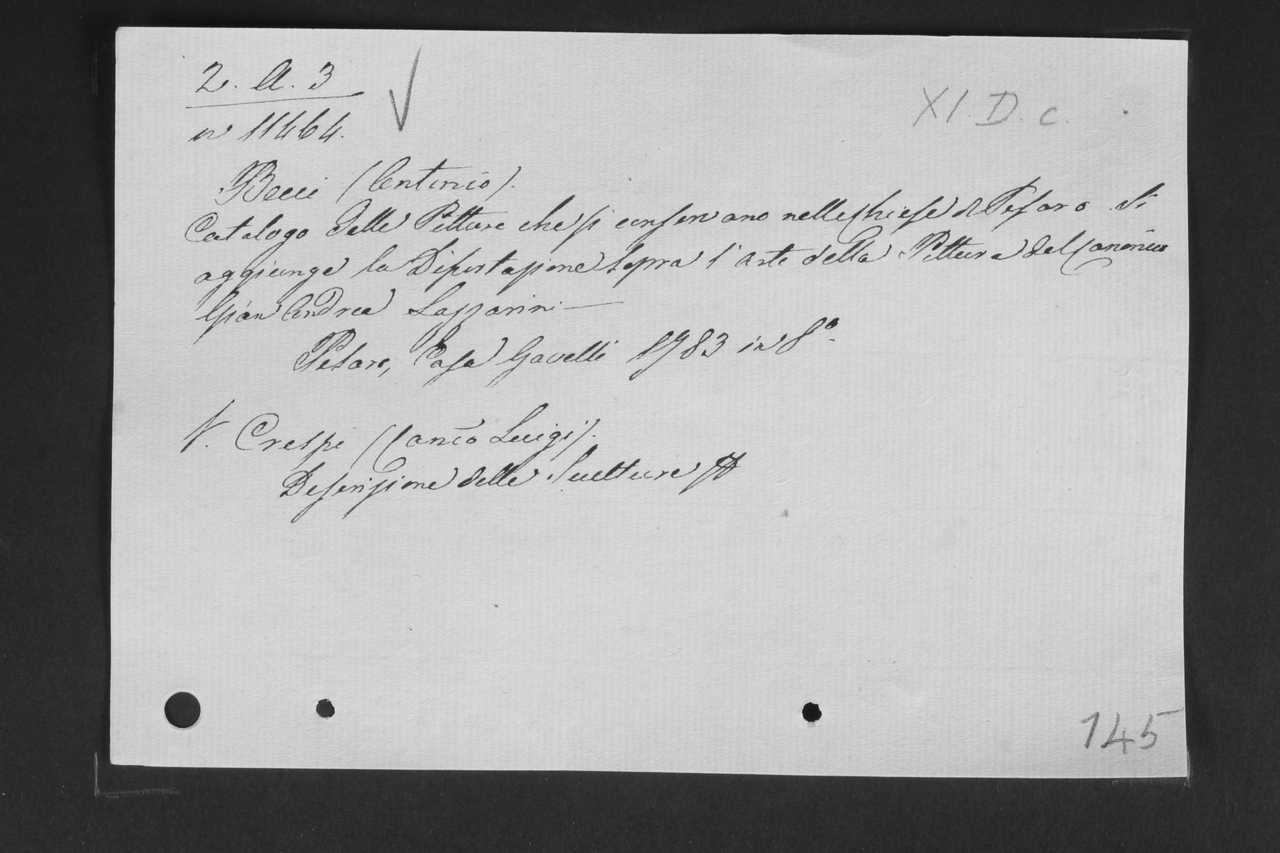 2. A. 3
XI. D. c.
n 11464.
Becci (Antonio).
Catalogo delle Pitture che si conservano nelle Chiese di Pesaro. Si
aggiunge la Dissertazione sopra l'arte della Pittura del Canonico
Gian Andrea Lazzarini —
Pesaro, Casa Gavelli 1783 in 8°.
V. Crespi (Canco Luigi).
Descrizione delle Sculture
145